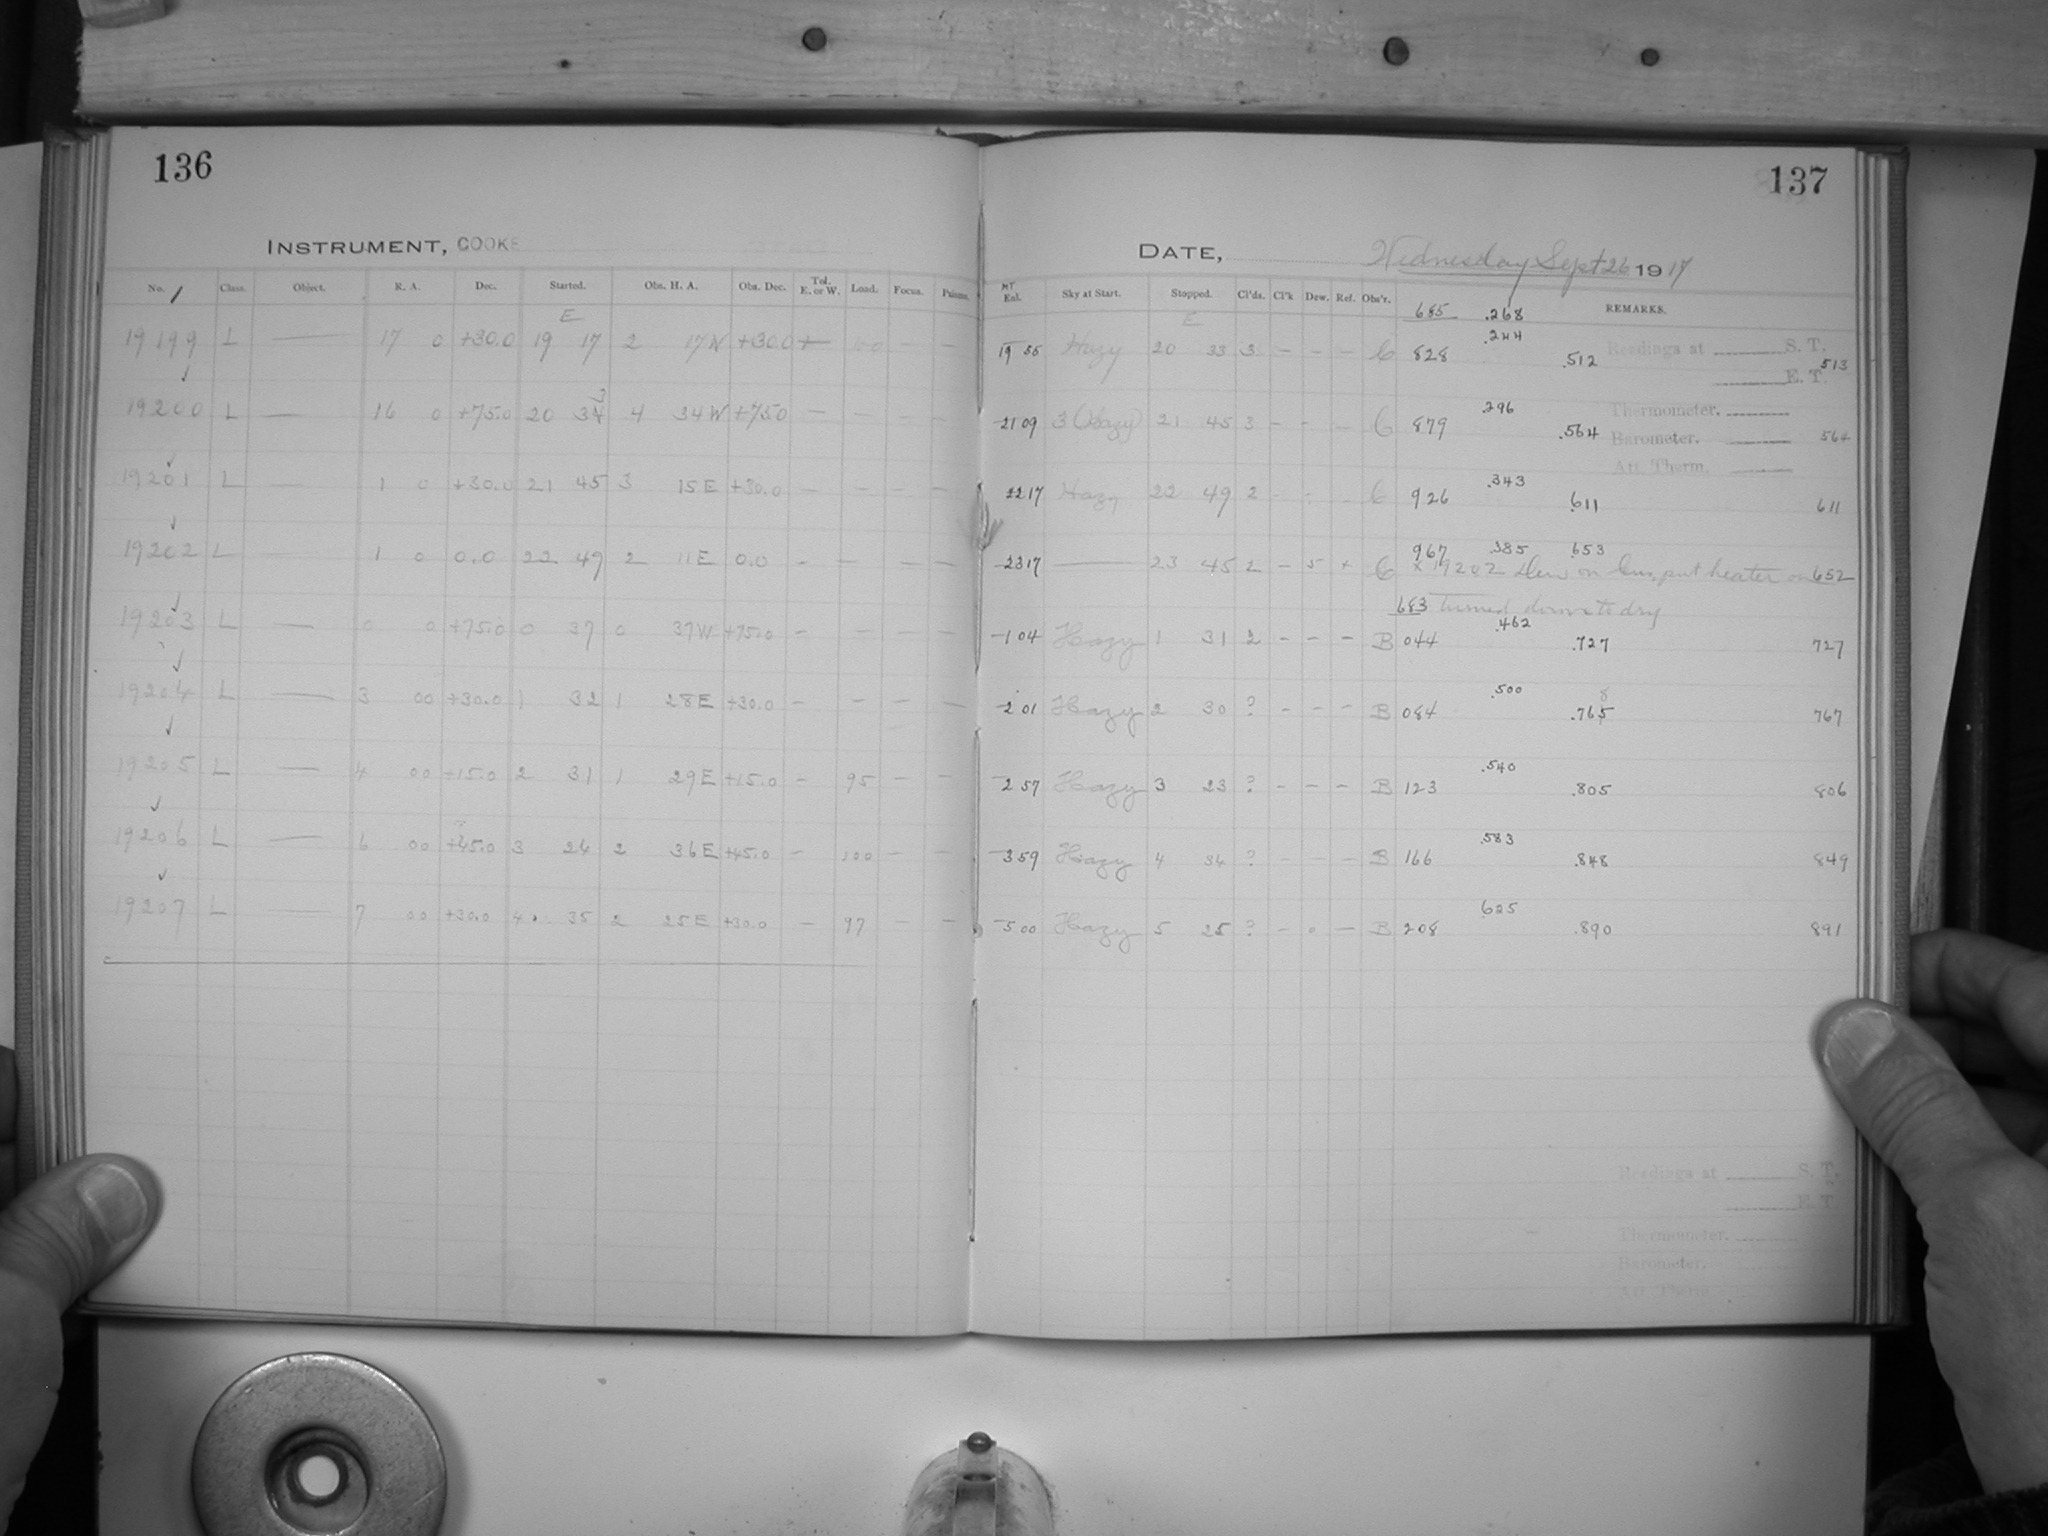 136
INSTRUMENT, COOKE
No. Class. Object. R. A. Dec. Started. Obs. H. A. Obs. Dec. Tel. E. or W. Load. Focus.
E
19199 L — 17 0 +30.0 19 17 2 17 W +30.0 — —
19200 L — 16 0 +75.0 20 3 4 34 W +75.0 — — — —
19201 L — 1 0 +30.0 21 45 3 15 E +30.0 — — — —
19202 L — 1 0 0.0 22 49 2 11 E 0.0 — — — —
19203 L — 0 0 +75.0 0 37 0 37 W +75.0 — — — —
19204 L — 3 00 +30.0 1 32 1 28 E +30.0 — — — —
19205 L — 4 00 +15.0 2 31 1 29 E +15.0 — 95 — —
19206 L — 6 00 +45.0 3 24 2 36 E +45.0 — 100 — —
19207 L — 7 00 +30.0 4 35 2 25 E +30.0 — 97 — —
137
DATE, Wednesday Sept 26 1917
MT
Sky at Start. Stopped. Cl'ds. Cl'k Dew. Ref. Obs'r. REMARKS.
685 .268
E
.244
19 55 Hazy 20 33 3 — — — C 828 .512 513
Readings at S. T.
E. T.
21 09 3 (Hazy) 21 45 3 — — — C 879 .296 .564 564
Thermometer.
Barometer.
Att. Therm.
22 17 Hazy 22 49 2 — — — C 926 .343 .611 611
23 17 — 23 45 2 — 5 + C 967 .385 .653 652
x 19202 Dew on lens, put heater on
683 turned down to dry
1 04 Hazy 1 31 2 — — — B 044 .462 .727 727
2 01 Hazy 2 30 ? — — — B 084 .500 .765 8 767
2 57 Hazy 3 23 ? — — — B 123 .540 .805 806
3 59 Hazy 4 34 ? — — — B 166 .583 .848 849
5 00 Hazy 5 25 ? — 0 — B 208 625 .890 891
Readings at S. T.
E. T.
Thermometer.
Barometer.
Att. Therm.